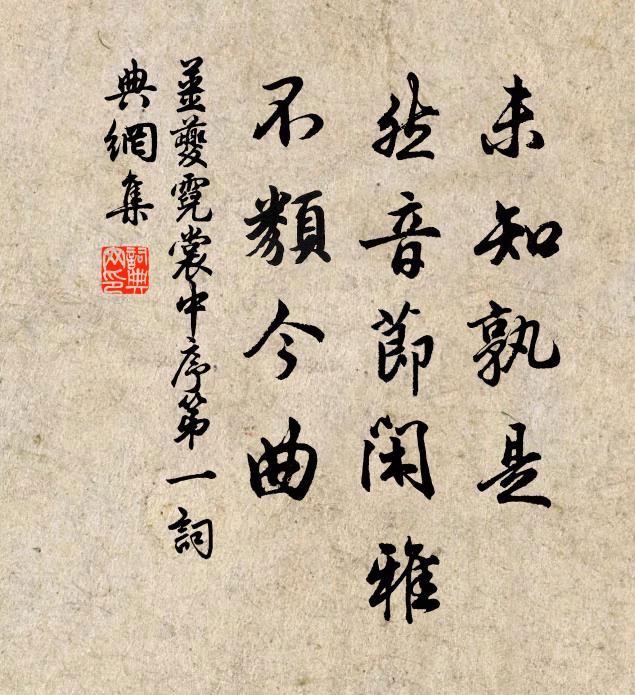 未知孰是
然音節閑雅
不類今曲
姜夔霓裳中序第一詞
典網集
詞典
网印